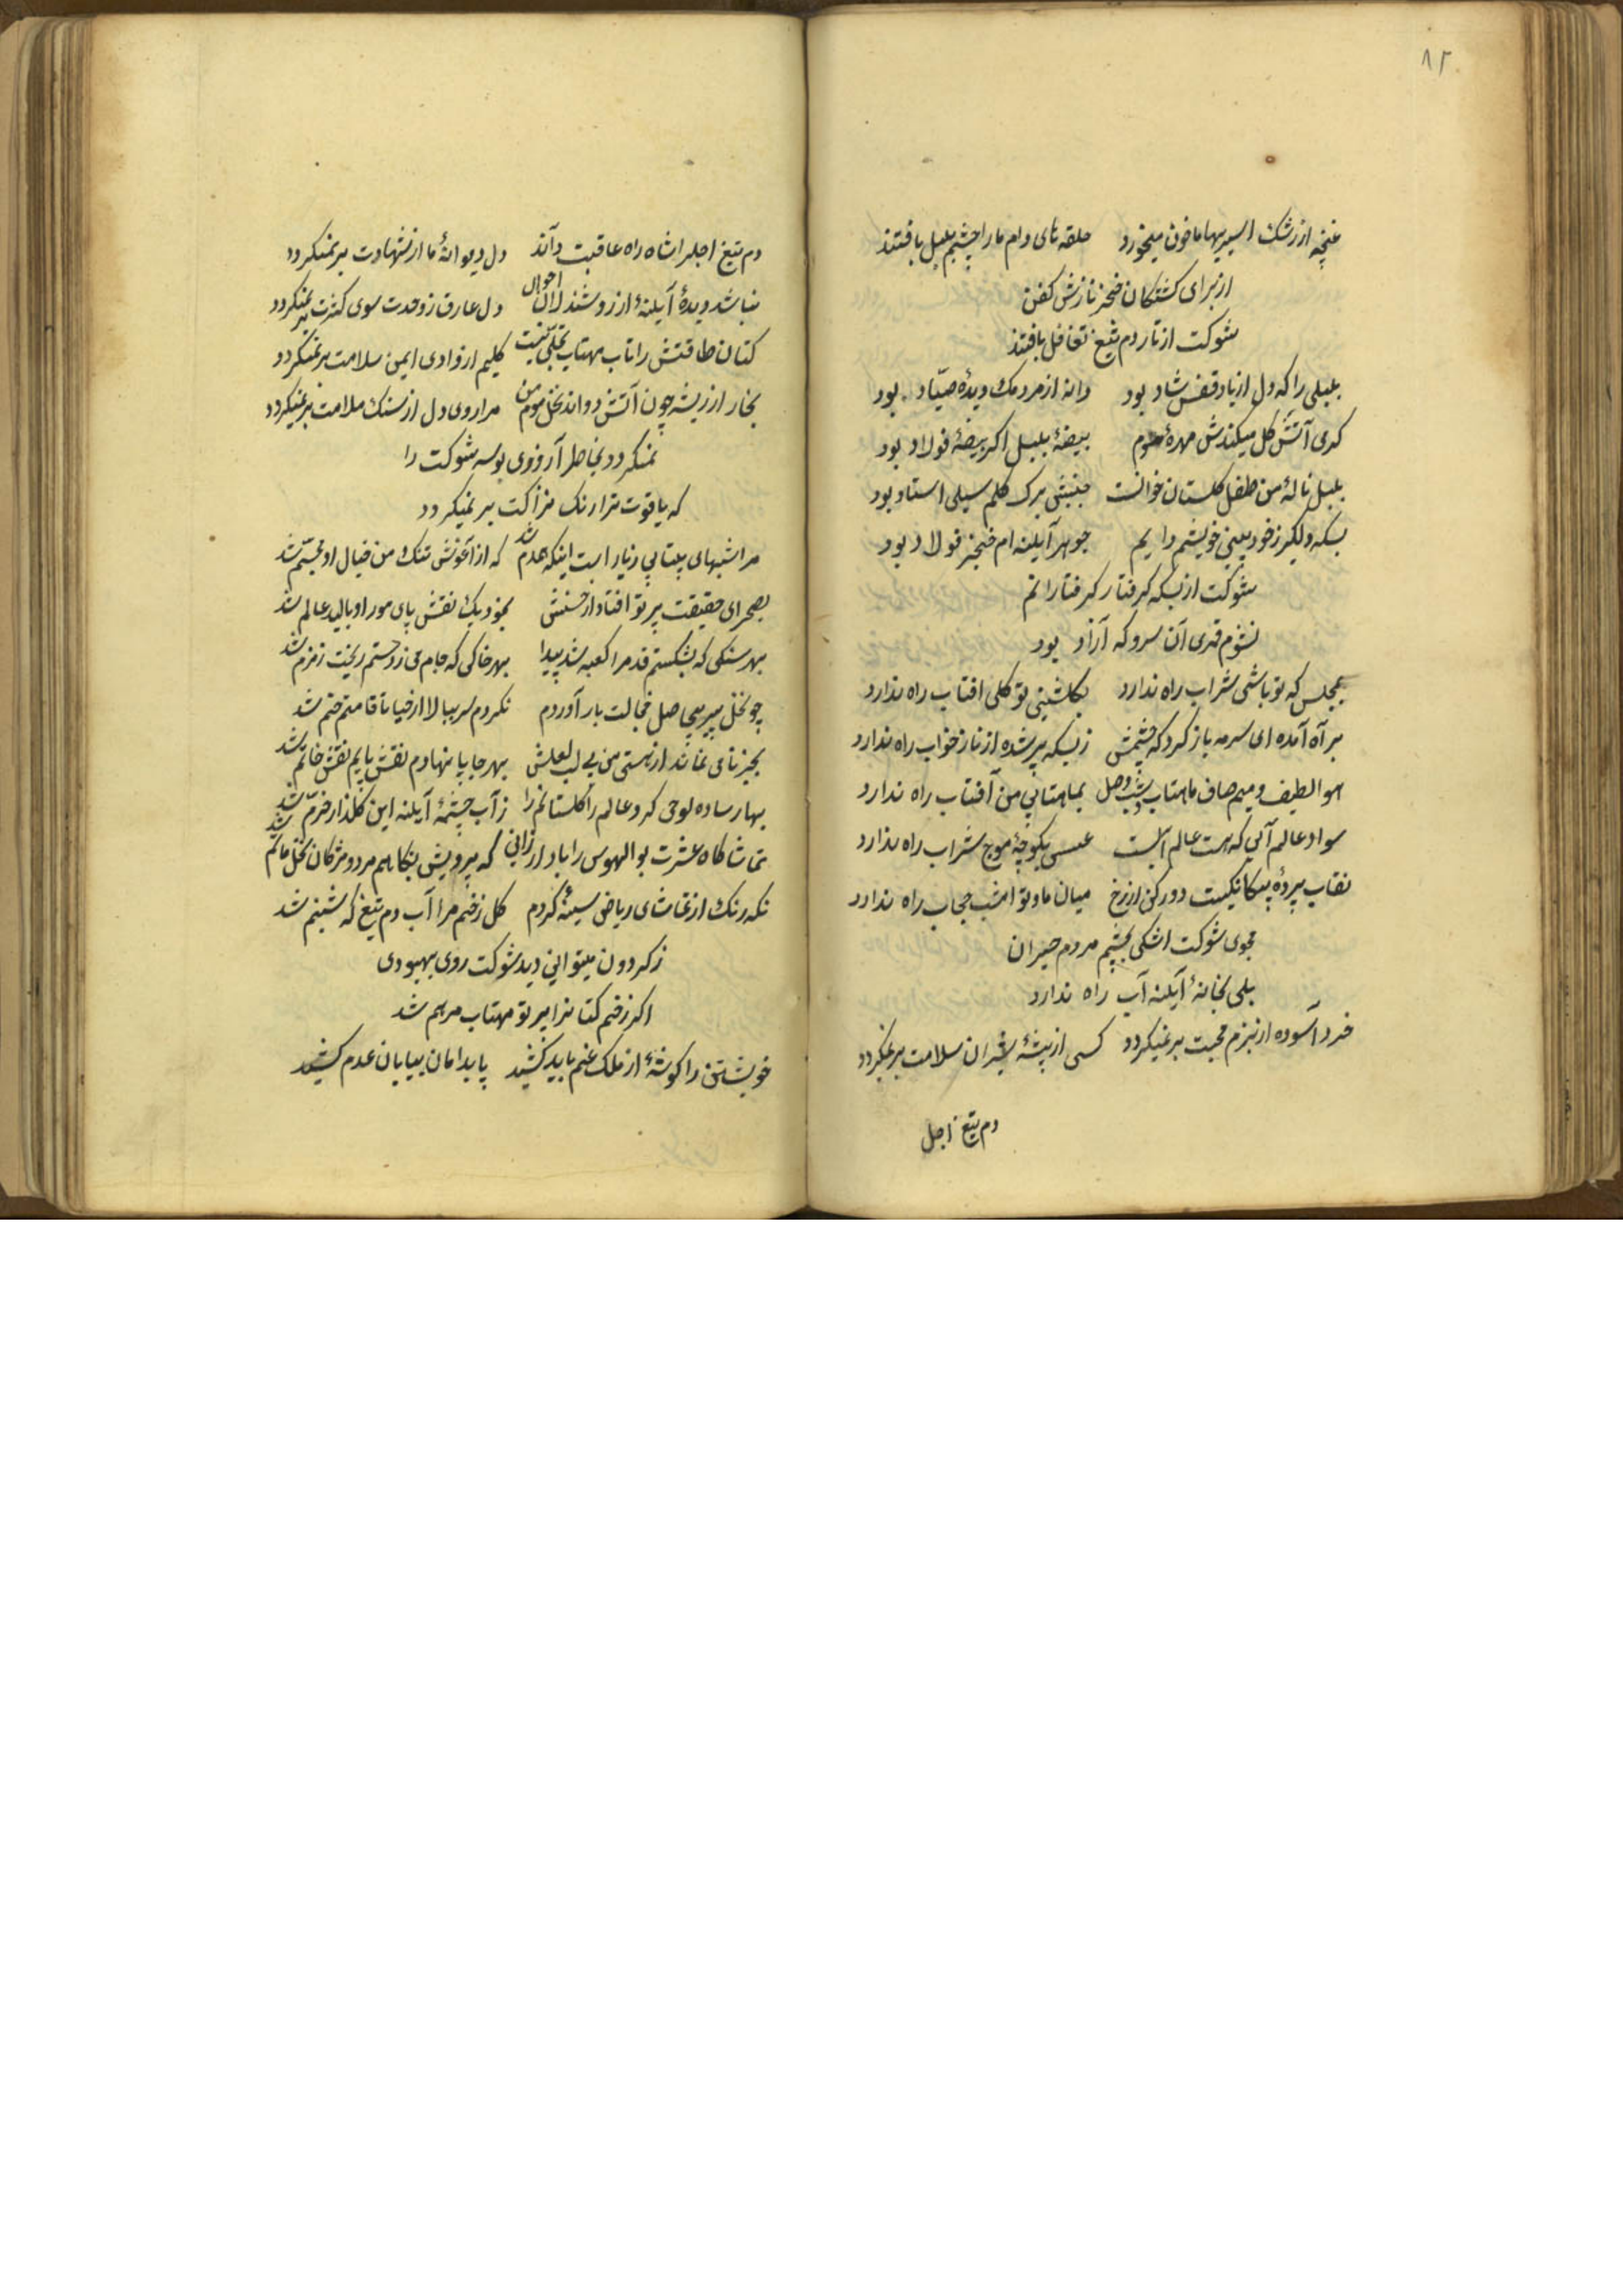 ٨٢
غنچه از رشک اسیریها ما خون میخورد حلقه های دام ما را چشم بلبل بافتند
از برای کشتکان خنجر نازش کفن
شوکت از تار دم تیغ تغافل بافتند
بلبلی را که دل از یاد قفس شاد بود دانه از مردمک دیدهٔ صیّاد بود
کرمی آتش کل میکندش مهرهٔ موم بیضهٔ بلبل اکر بیضهٔ فولاد بود
بلبل نالهٔ من طفل کلستان خوانست جنبش برک کلم سیلی استاد بود
بسکه دلکیر ز خود بینی خویشم دایم جوهر آینه ام خنجر فولاد بود
شوکت از بسکه کرفتار کرفتارانم
نشوم قمری آن سرو که آزاد بود
بمجلس که تو باشی شراب راه ندارد بکلشنی تو کلی افتاب راه ندارد
بر آه آمده ای سرمه باز کرد که چشمش ز بسکه پر شده از ناز خواب راه ندارد
هوا لطیف و میم صاف ماهتاب و شب وصل بماهتابی من آفتاب راه ندارد
سواد عالم آبی که هست عالم است عسس بکوچهٔ موج شراب راه ندارد
نقاب پردهٔ بیکانکیست دور کن از رخ میان ما و تو امشب حجاب راه ندارد
مجوی شوکت اشکی بچشم مردم حیران
بلی بخانهٔ آینه آب راه ندارد
خرد آسوده از بزم محبت بر نمیکردد کسی از بیشهٔ شیران سلامت بر نمیکردد
دم تیغ اجل
دم تیغ اجل را شاه راه عاقبت داند دل دیوانهٔ ما از شهادت بر نمیکردد
نباشد دیدهٔ آینهٔ از روشندلان احوال دل عارف ز وحدت سوی کثرت بر نمیکردد
کتان طاقتش را تاب مهتاب تجلّی نیست کلیم از وادی ایمن سلامت بر نمیکردد
بخار از ریشه چون آتش دواند نخل موم من مرا روی دل از سنک ملامت بر نمیکردد
نمیکردد بخاطر آرزوی بوسه شوکت را
که یاقوت ترا رنک نزاکت بر نمیکردد
مرا شبهای بیتابی ز یار است اینکه همدم شد که از آغوش تنک من خیال او مجسّم شد
بصحرای حقیقت پرتو افتاد از حسنش بخود یک نقش پای مور او بالید عالم شد
بهر سنکی که بشکستم قدم را کعبه شد پیدا بهر خاکی که جام می ز دستم ریخت زمزم شد
چو نخل پیر بیحاصل خجالت بار آوردم نکردم سر ببالا از حیا تا قامتم خم شد
بجیز نامی نماند از هستی من بی لب لعلش بهر جا پا نهادم نقش پایم نقش خاتم شد
بهار ساده لوحی کرد عالم را کلستانم را ز آب چشمهٔ آینه این کلذار خرّم شد
تماشاکاه عشرت بوالهوس را باد ارزانی که بی رویش نکاهم مرد و مژکان نخل ماتم شد
نکه رنک از تماشای ریاض سینهٔ کردم کل زخم مرا آب دم تیغ که شبنم شد
ز کردون میتوانی دید شوکت روی بهبودی
اکر زخم کتانرا پرتو مهتاب مرهم شد
خویشتن را کوشهٔ از ملک غم باید کشید پا بدامان بیابان عدم باید کشید